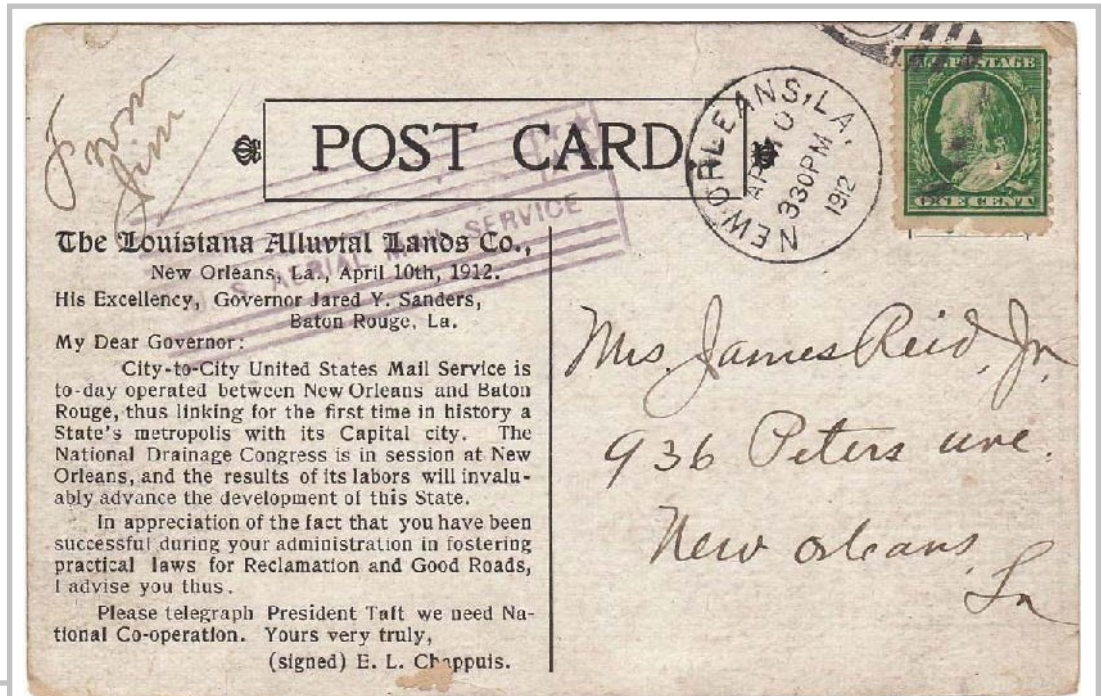 From
Jim
POST CARD
NEW ORLEANS, LA.
APR 10
330 PM
1912
U.S. POSTAGE
ONE CENT
U. S. AERIAL MAIL SERVICE
The Louisiana Alluvial Lands Co.,
New Orleans, La., April 10th, 1912.
His Excellency, Governor Jared Y. Sanders,
Baton Rouge, La.
My Dear Governor:
City-to-City United States Mail Service is
to-day operated between New Orleans and Baton
Rouge, thus linking for the first time in history a
State's metropolis with its Capital city. The
National Drainage Congress is in session at New
Orleans, and the results of its labors will invalu-
ably advance the development of this State.
In appreciation of the fact that you have been
successful during your administration in fostering
practical laws for Reclamation and Good Roads,
I advise you thus.
Please telegraph President Taft we need Na-
tional Co-operation. Yours very truly,
(signed) E. L. Chappuis.
Mrs. James Reid, Jr.
936 Peters ave.
New Orleans,
La